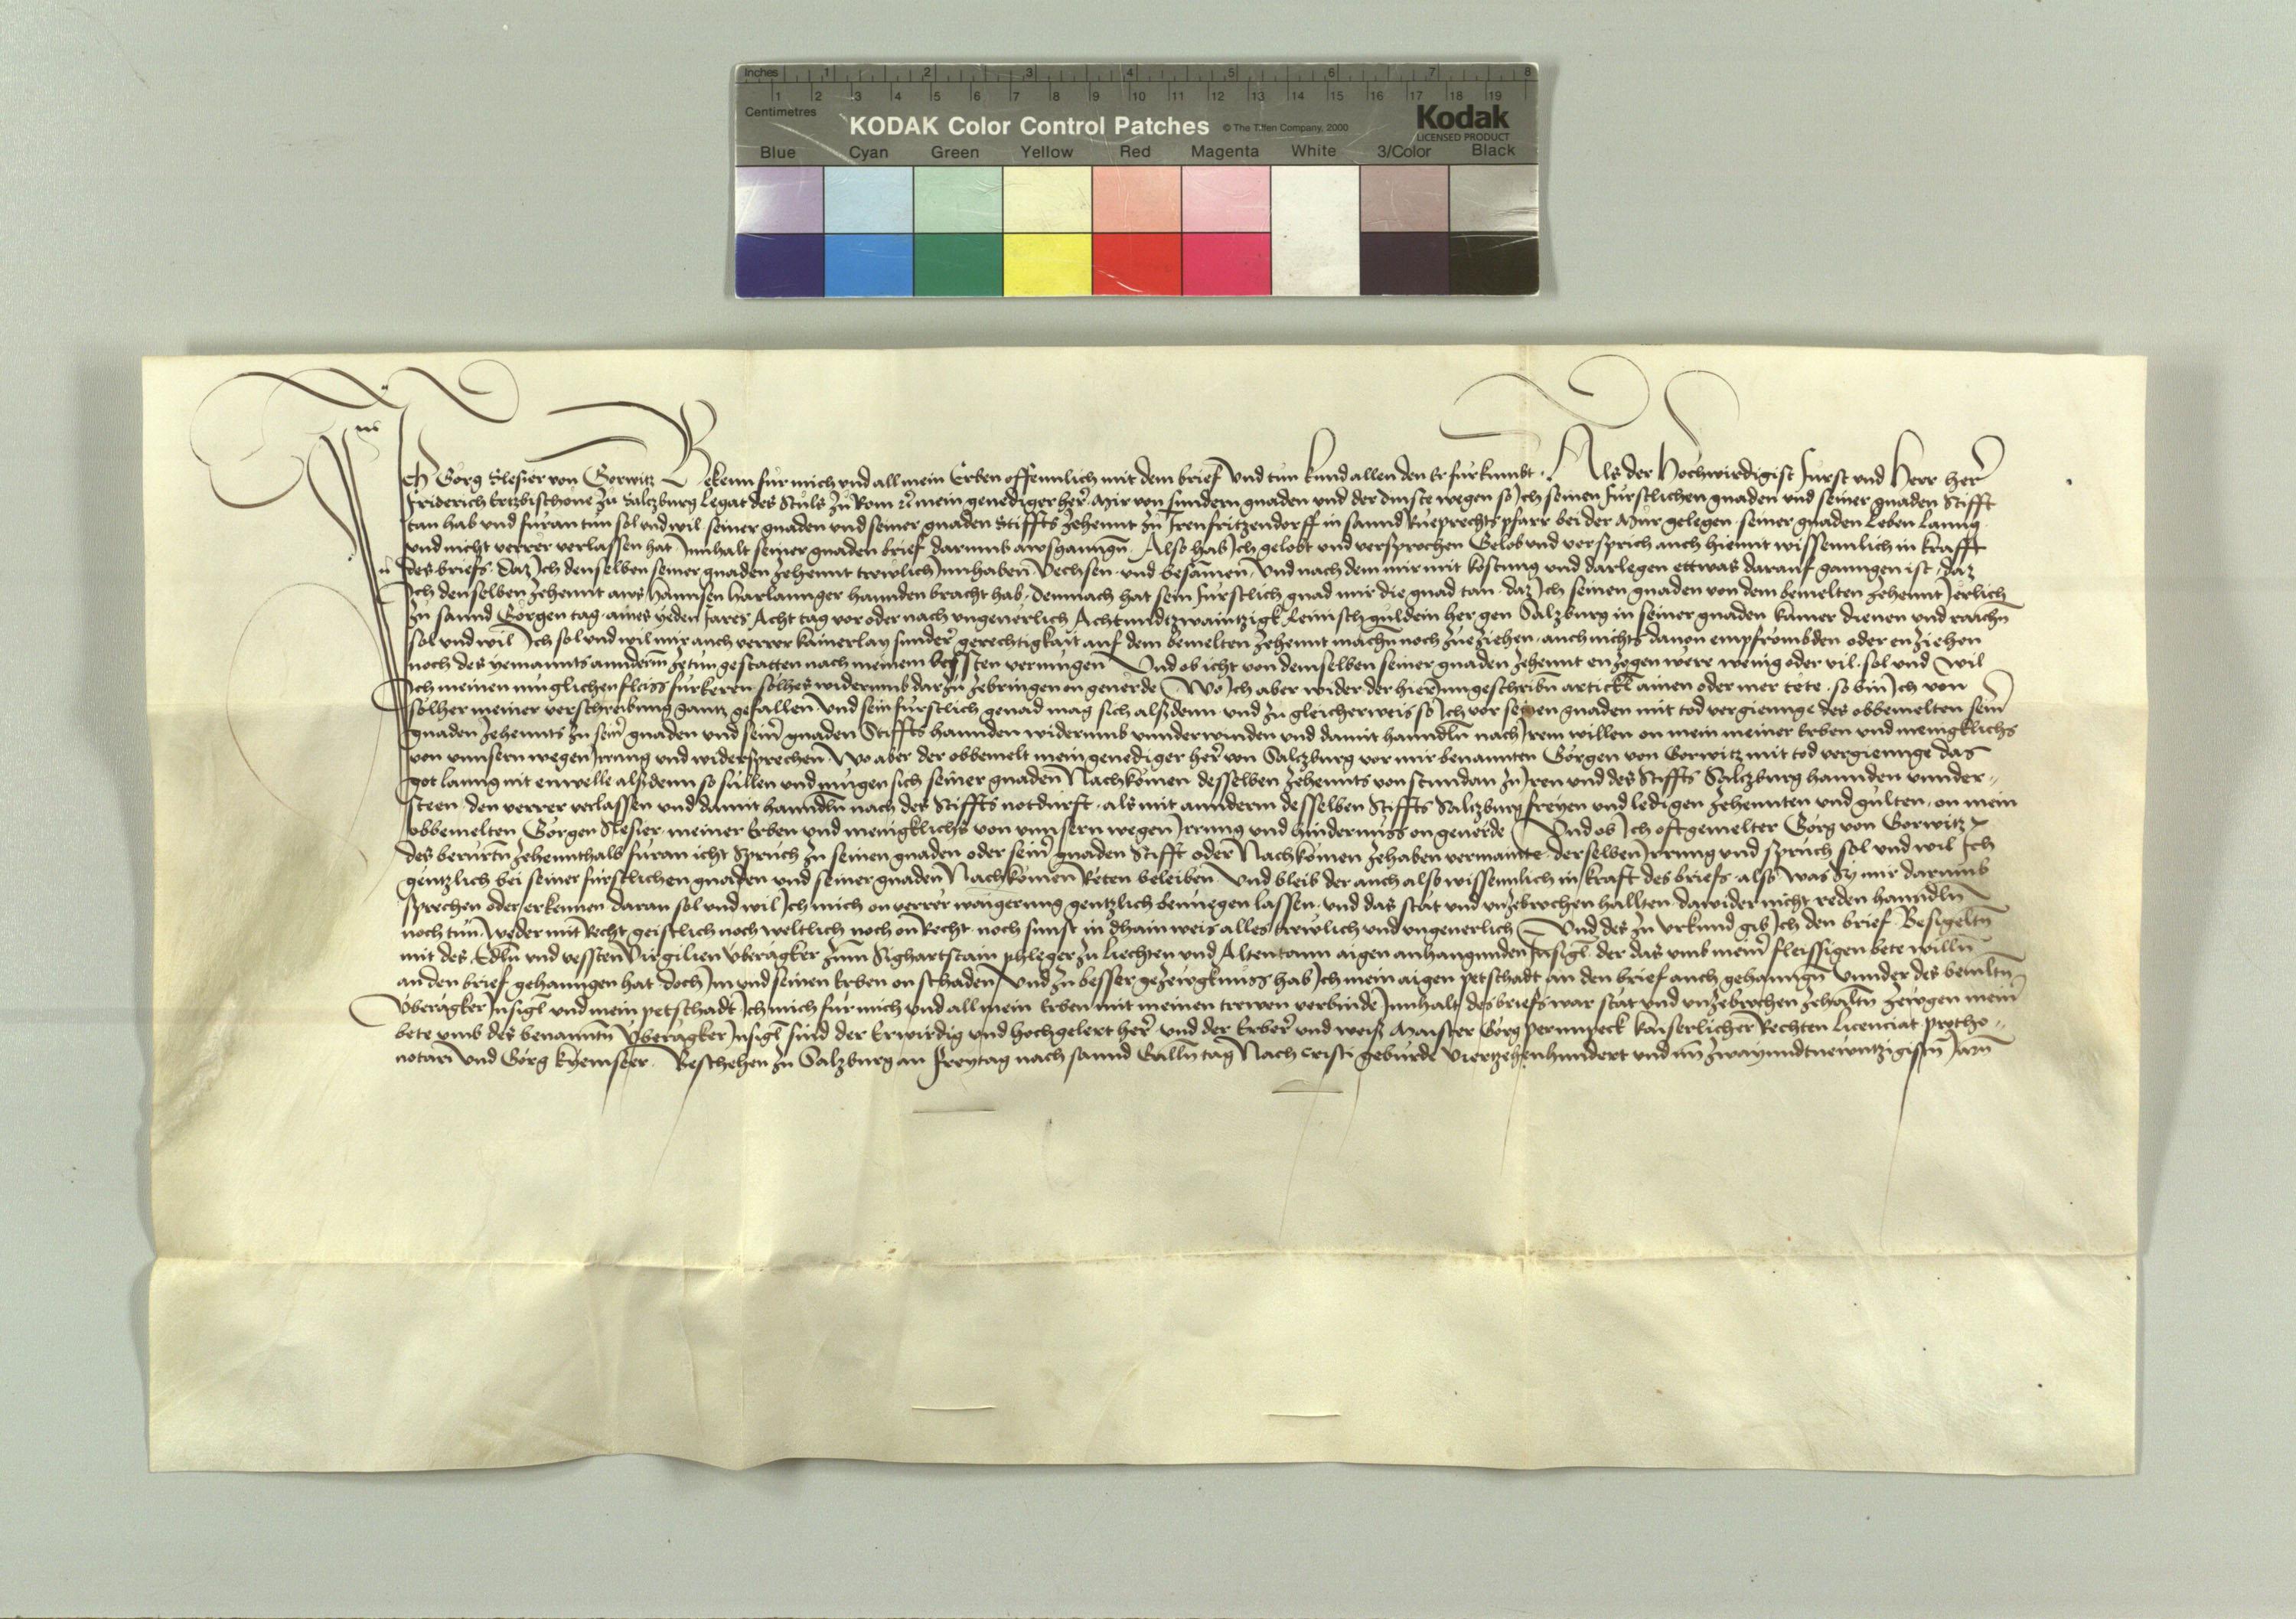 Inches 1 2 3 4 5 6 7 8
1 2 3 4 5 6 7 8 9 10 11 12 13 14 15 16 17 18 19
Centimetres
KODAK Color Control Patches © The Tiffen Company, 2000 Kodak
LICENSED PRODUCT
Blue Cyan Green Yellow Red Magenta White 3/Color Black
Ich Görg Slesier von Gorwitz Bekenn für mich und all mein Erben offennlich mit dem brief und tun kund allen den Er fürkumbt. Als der Hochwirdigist Fürst und Herr her
Friderich Ertzbischove zu Saltzburg Legat des Stuls zu Rom mein genediger her. Mir von sundern gnaden und der dinste wegen so Ich seinen fürstlichen gnaden und seiner gnaden Stifft
tan hab und füran tun sol und wil seiner gnaden und seiner gnaden Stiffts zehennt zu Frenfritzendorff in sannd Rueprechts pfarr bei der Mur gelegen seiner gnaden Leben lanng
und nicht verrer verlassen hat Innhalt seiner gnaden brief darumb awsganngn. Also hab Ich gelobt und versprochen Gelob und versprich auch hiemit wissennlich in krafft
des briefs. daz Ich denselben seiner gnaden zehennt trewlich Innhaben Vechsen und besamen. Und nach dem mir mit kostung und darlegen ettwas darauf ganngen ist, daz
Ich denselben zehennt aws Hannsen Harlannger hannden bracht hab. Demnach hat sein fürstlich gnad mir die gnad tan. daz Ich seinen gnaden von dem bemelten zehennt Jerlich
zu sannd Görgen tag aines yeden Jares Acht tag vor oder nach ungeverlich Achtundtzwaintzigk Reinisch guldein her gen Saltzburg in seiner gnaden kamer dienen und raichn
sol und wil Ich sol und wil mir auch verrer kainerlay sunder gerechtigkait auf dem bemelten zehennt machn noch zueziehen. auch nichts davon empfrömbden oder enziehen
noch des yemannts annderm zetun gestatten nach meinem bessten vermugen Und ob icht von demselben seiner gnaden zehennt enzogen were wenig oder vil. sol und wil
Ich meinen muglichen fleiss fürkeren solhes widerumb darzu zebringen on geverde Wo Ich aber wider der hierInngeschribn artickl ainen oder mer tete. so bin Ich von
solher meiner verschreibung gantz gefallen. Und sein fürstlich genad mag sich alßdenn und zu gleicherweis so Ich vor seinen gnaden mit tod vergiennge des obbemelten seiner
gnaden zehennts zu seiner gnaden und seiner gnaden Stiffts hannden widerumb unnderwinden und damit hanndln nach Irem willen on mein meiner Erben und menigklichs
von unnsern wegen Irrung und widersprechen. Wo aber der obbemelt mein genediger her von Saltzburg vor mir benannten Görgen von Gorwitz mit tod vergiennge das
got lanng nit enwelle alßdenn so sullen und mugen sich seiner gnaden Nachkomen desselben zehennts von stundan zu Iren und des Stiffts Saltzburg hannden unnder-
steen. den verrer verlassen und damit hanndln nach des Stiffts notdurft. als mit annderm desselben Stiffts Saltzburg freyen und ledigen zehennten und gulten. on mein
obbemelten Görgen Slesier. meiner Erben und menigklichs von unnsern wegen Irrung und hindernuss on geverde Und ob Ich oftgemelter Görg von Gorwitz
des berurtn zehennthalb füran icht Spruch zu seinen gnaden oder seiner gnaden Stifft oder Nachkomen zehaben vermainte. derselben Irrung und spruch sol und wil Ich
gentzlich bei seiner fürstlichen gnaden und seiner gnaden Nachkomen Reten beleiben. Und bleib der auch also wissennlich in kraft des briefs. also was Sy mir darumb
sprechen oder erkennen daran sol und wil Ich mich on verrer waigerung gentzlich benuegen lassen. und das stat und unzebrochen hallten. dawider nicht reden hanndln
noch tun. weder mit Recht geistlich noch weltlich noch on Recht. noch sunst in dhain weis alles trewlich und ungeverlich Und des zu Urkund gib Ich den brief Besigeltn
mit des Edln und vessten Virgilien Überagker zum Sighartstain phleger zu Liechten und Altentann aigen anhangunden Insigl. der das umb meiner fleissigen bete willn
an den brief gehanngen hat doch Im und seinen Erben on schaden Und zu besser gezewgknuss hab Ich mein aigen petschadt an den brief auch gehanngn Unnder des bemeltn
Überagker Insigl und mein petschadt Ich mich für mich und all mein Erben mit meinen trewen verbinde Innhalt des briefs war stat und unzebrochen zehaltn zewgen meiner
bete umb des benanntn Überagker Insigl sind der Erwirdig und hochgelert her und der Erber und weiß Maister Görg Pernnpeck kaiserlicher Rechten Licenciat protho-
notari Und Görg Kyemseer. Beschehen zu Saltzburg an Freytag nach sannd Galln tag Nach cristi geburde Viertzehenhundert und im zwayundtnewntzigistn Jarn